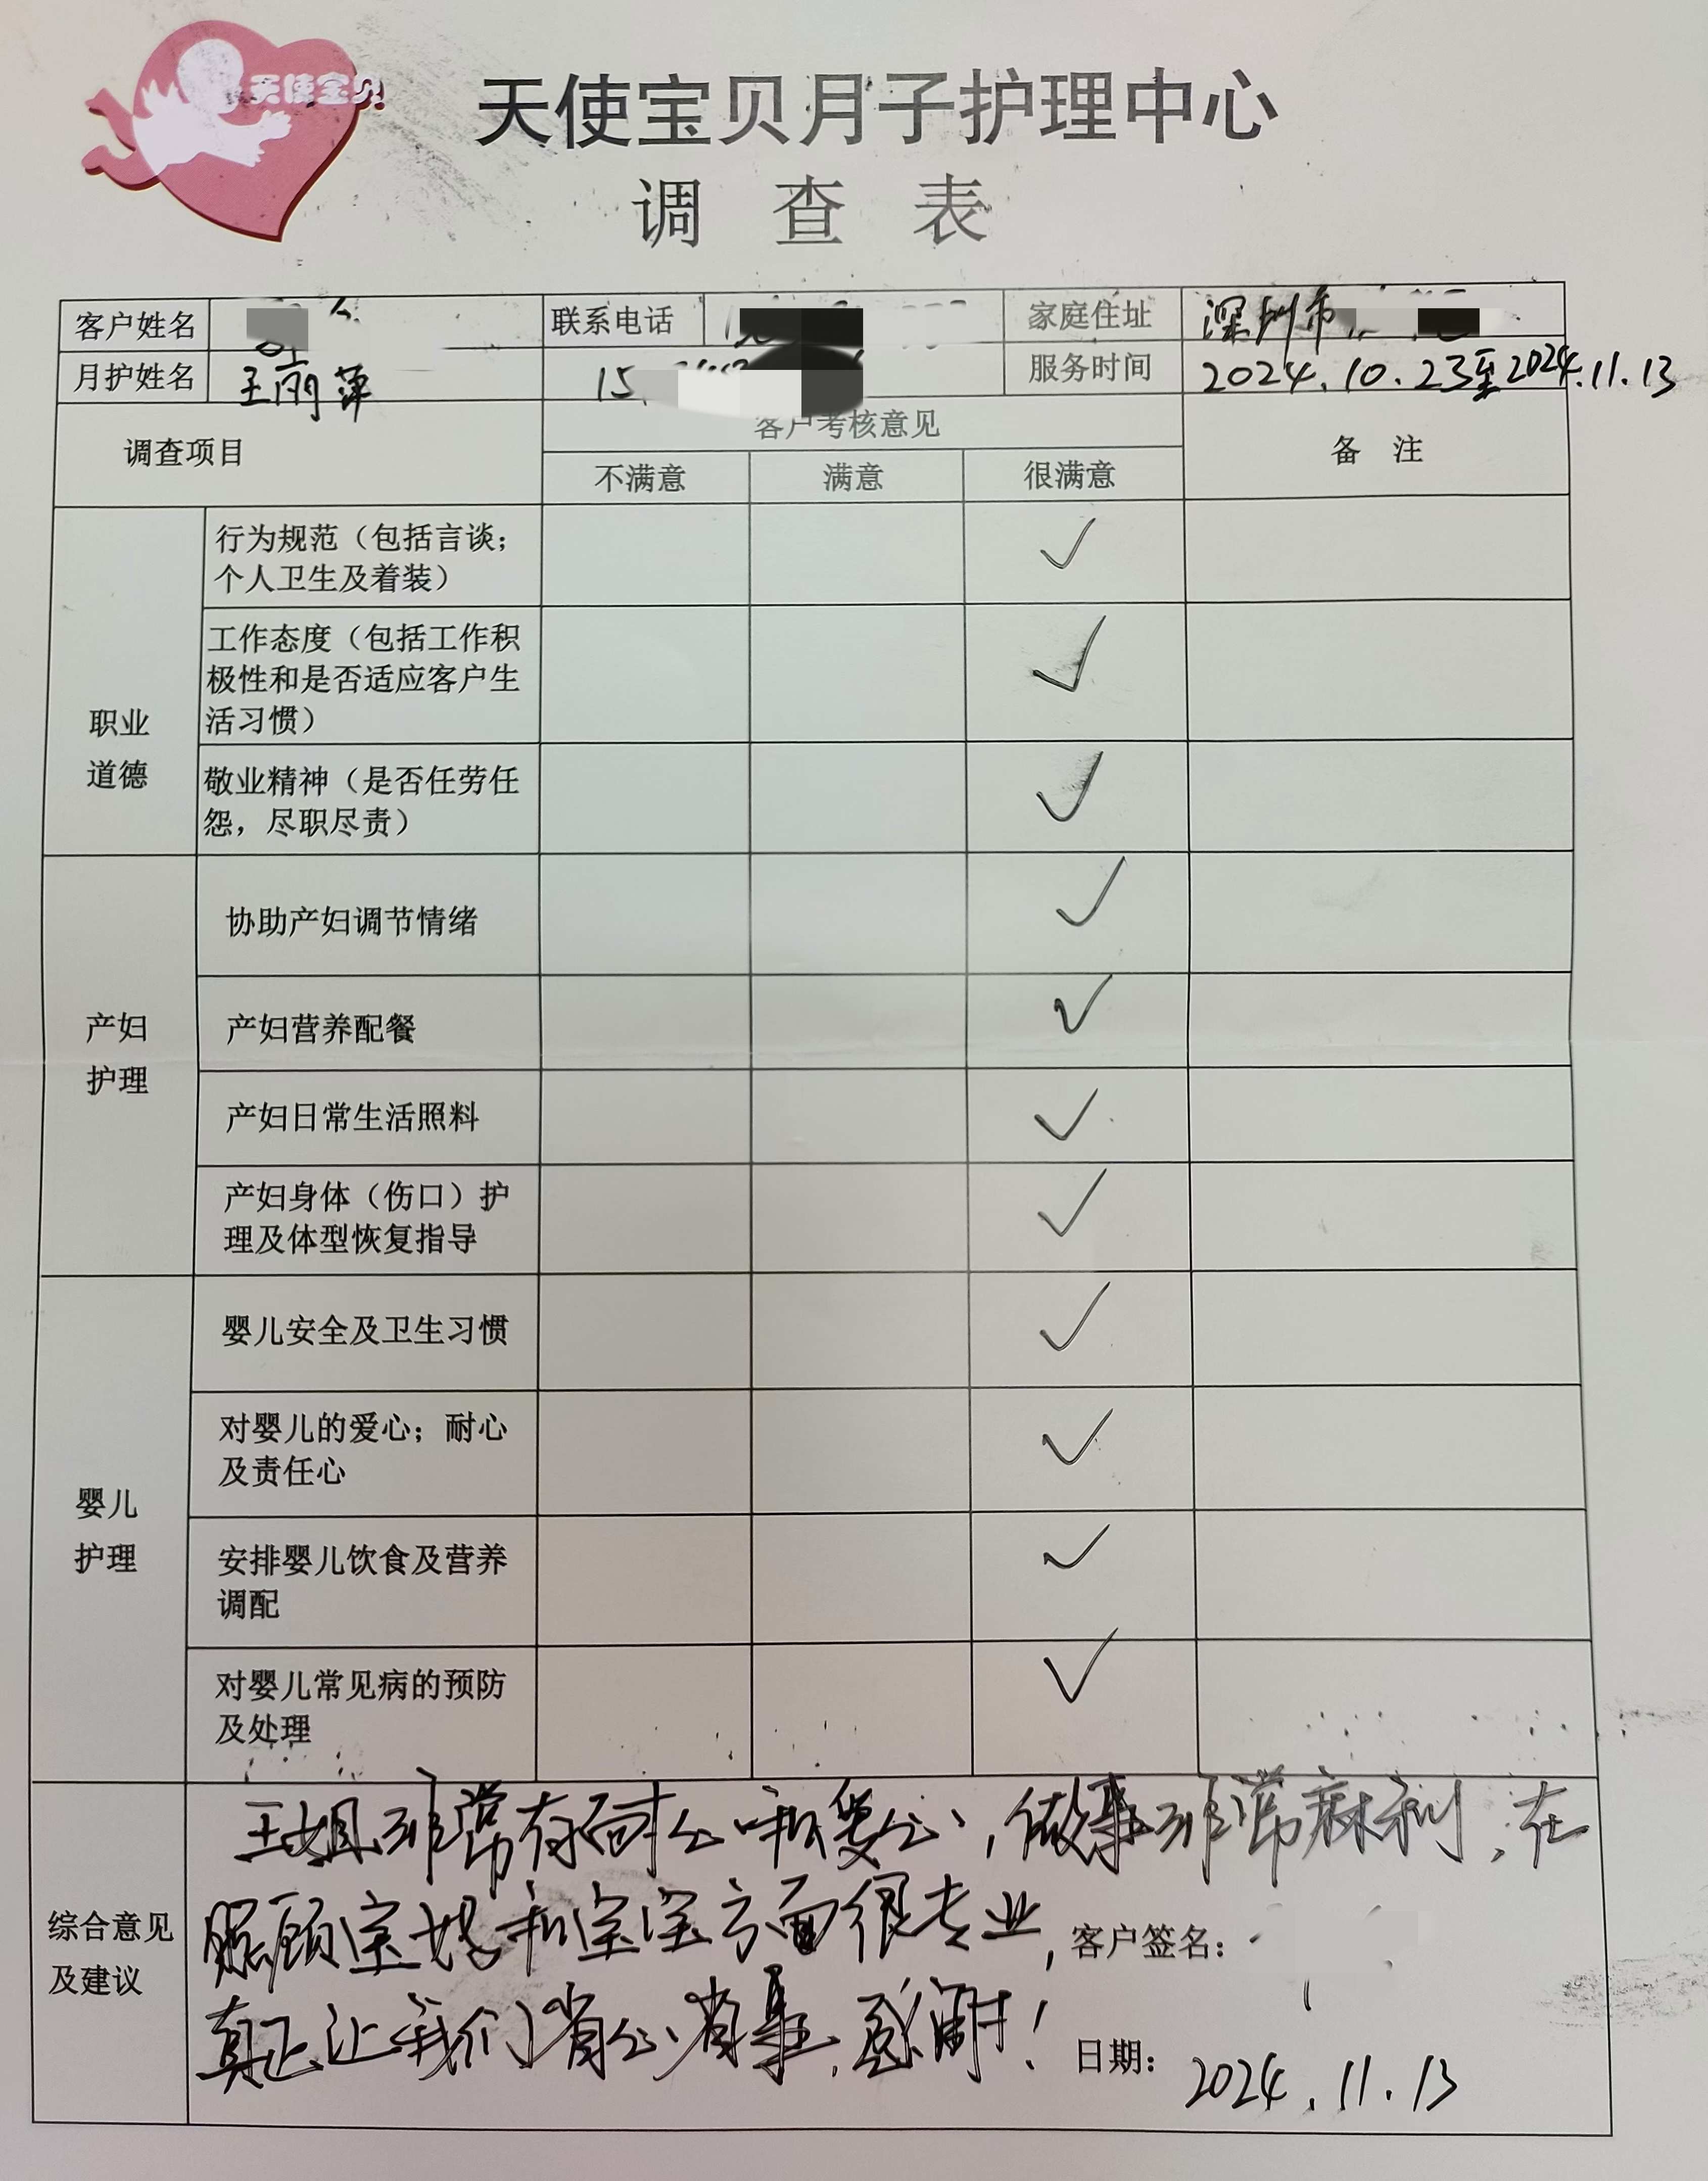 天使宝贝
天使宝贝月子护理中心
调 查 表
客户姓名 联系电话 家庭住址 深圳市
月护姓名 王丽萍 15 服务时间 2024.10.23至2024.11.13
调查项目 客户考核意见 备 注
不满意 满意 很满意
职业
道德
行为规范（包括言谈；
个人卫生及着装） ✓
工作态度（包括工作积
极性和是否适应客户生
活习惯） ✓
敬业精神（是否任劳任
怨，尽职尽责） ✓
产妇
护理
协助产妇调节情绪 ✓
产妇营养配餐 ✓
产妇日常生活照料 ✓
产妇身体（伤口）护
理及体型恢复指导 ✓
婴儿
护理
婴儿安全及卫生习惯 ✓
对婴儿的爱心；耐心
及责任心 ✓
安排婴儿饮食及营养
调配 ✓
对婴儿常见病的预防
及处理 ✓
综合意见
及建议
王姐非常有耐心和爱心，做事非常麻利，在
照顾宝妈和宝宝方面很专业，
真正让我们省心省事，感谢！
客户签名：
日期： 2024.11.13